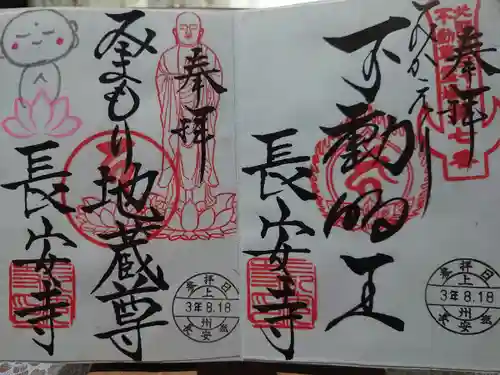 奉拝
不動明王
長安寺
参拝日
上
3年8.18
州
長安寺
奉拝
みまもり地蔵尊
長安寺
参拝日
上
3年8.18
州
長安寺